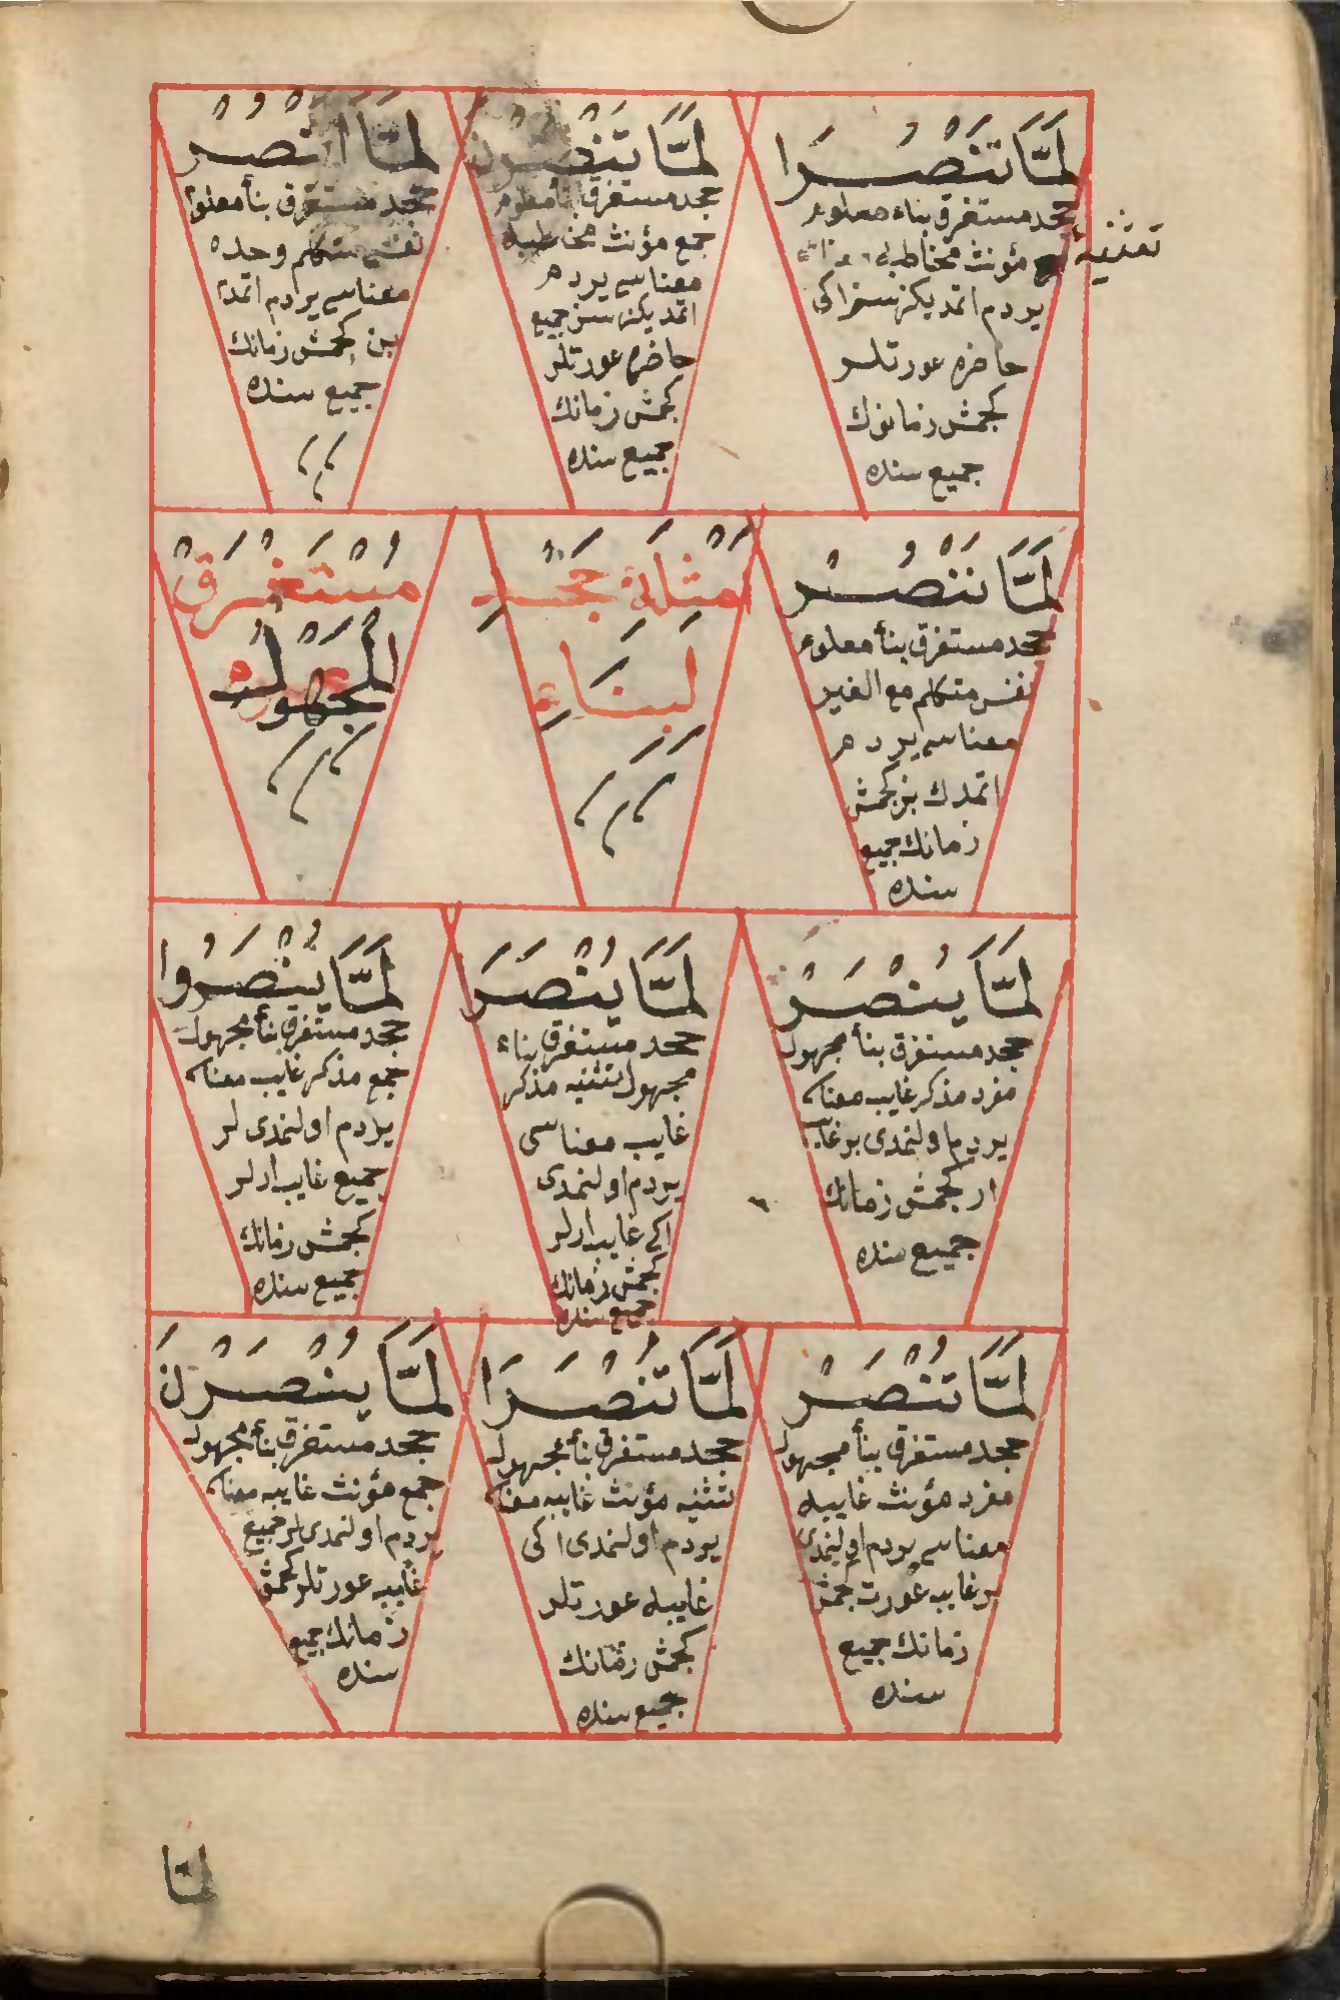 لَمَّا تَنْصُرَا
جحد مستغرق بناء معلوم
مؤنث مخاطبه
تثنيه
يردم اتمديكز سز ايكى
حاضره عورتلر
كچمش زمانك
جميع سنده
لَمَّا تَنْصُرْنَ
جحد مستغرق بنأ معلوم
جمع مؤنث مخاطبه
معناسى يردم
اتمديكز سز جميع
حاضره عورتلر
كچمش زمانك
جميع سنده
لَمَّا اَنْصُرْ
جحد مستغرق بنأ معلوم
نفس متكلم وحده
معناسى يردم اتمدم
بن كچمش زمانك
جميع سنده
لَمَّا نَنْصُرْ
جحد مستغرق بنأ معلوم
نفس متكلم مع الغير
معناسى يردم
اتمدك بز كچمش
زمانك جميع
سنده
اَمْثِلَةُ جَحْدِ
لِبِنَاءِ
مُسْتَغْرَقْ
الْمَجْهُولِ
لَمَّا يُنْصَرْ
جحد مستغرق بنأ مجهول
مفرد مذكر غايب معناسى
يردم اولنمدى بر غايب
ار كچمش زمانك
جميع سنده
لَمَّا يُنْصَرَا
جحد مستغرق بناء
مجهول تثنيه مذكر
غايب معناسى
يردم اولنمدى
ايكى غايب ارلر
كچمش زمانك
جميع سنده
لَمَّا يُنْصَرُوا
جحد مستغرق بنأ مجهول
جمع مذكر غايب معناسى
يردم اولنمدى لر
جميع غايب ارلر
كچمش زمانك
جميع سنده
لَمَّا تُنْصَرْ
جحد مستغرق بنأ مجهول
مفرد مؤنث غايبه
معناسى يردم اولنمدى
بر غايبه عورت كچمش
زمانك جميع
سنده
لَمَّا تُنْصَرَا
جحد مستغرق بنأ مجهول
تثنيه مؤنث غايبه معناسى
يردم اولنمدى اكى
غايبه عورتلر
كچمش زمانك
جميع سنده
لَمَّا يُنْصَرْنَ
جحد مستغرق بنأ مجهول
جمع مؤنث غايبه معناسى
يردم اولنمدى لر جميع
غايبه عورتلر كچمش
زمانك جميع
سنده
لمّا